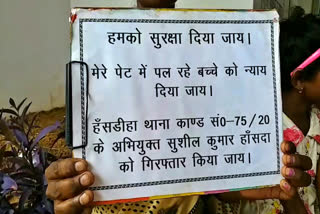 हमको सुरक्षा दिया जाय।
मेरे पेट में पल रहे बच्चे को न्याय
दिया जाय।
हँसडीहा थाना काण्ड सं0-75/20
के अभियुक्त सुशील कुमार हाँसदा
को गिरफ्तार किया जाय।